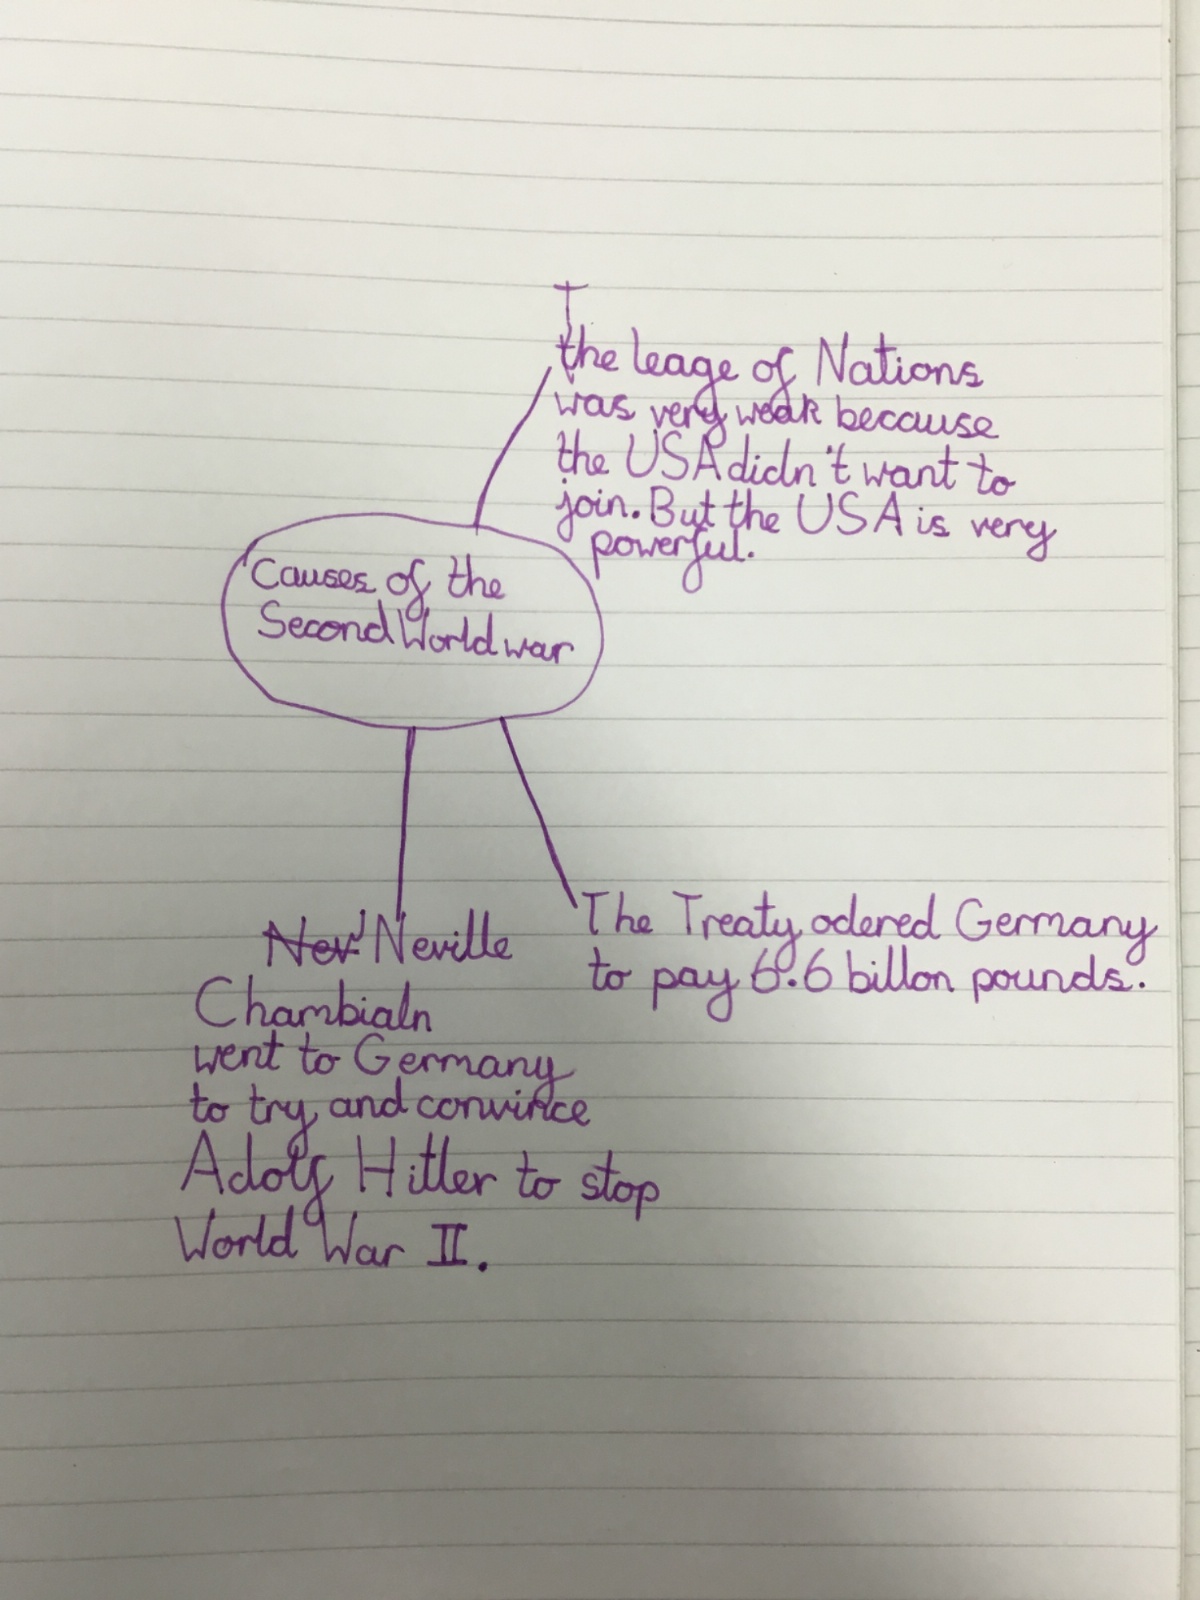 the leage of Nations
was very weak because
the USA didn't want to
join. But the USA is very
powerful.
Causes of the
Second World war
Nev Neville
Chambialn
went to Germany
to try and convince
Adolf Hitler to stop
World War II.
The Treaty odered Germany
to pay 6.6 billon pounds.